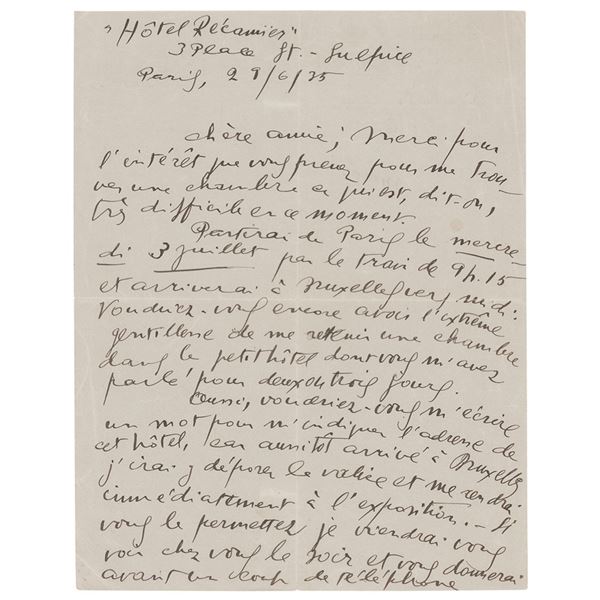 "Hôtel Récamier"
3 Place St.-Sulpice
Paris, 29/6/35
chère amie; Merci pour
l'intérêt que vous prenez pour me trou-
ver une chambre ce qui est, dit-on,
très difficile en ce moment.
Partirai de Paris le mercre-
di 3 juillet par le train de 9h.15
et arriverai à Bruxelles vers midi.
Voudriez-vous encore avoir l'extrême
gentillesse de me retenir une chambre
dans le petit hôtel dont vous m'avez
parlé pour deux ou trois jours.
Aussi, voudriez-vous m'écrire
un mot pour m'indiquer l'adresse de
cet hôtel, car aussitôt arrivé à Bruxelles
j'irai y déposer la valise et me rendrai
immédiatement à l'exposition. - Si
vous le permettez je viendrai vous
voir chez vous le soir et vous donnerai
avant un coup de téléphone